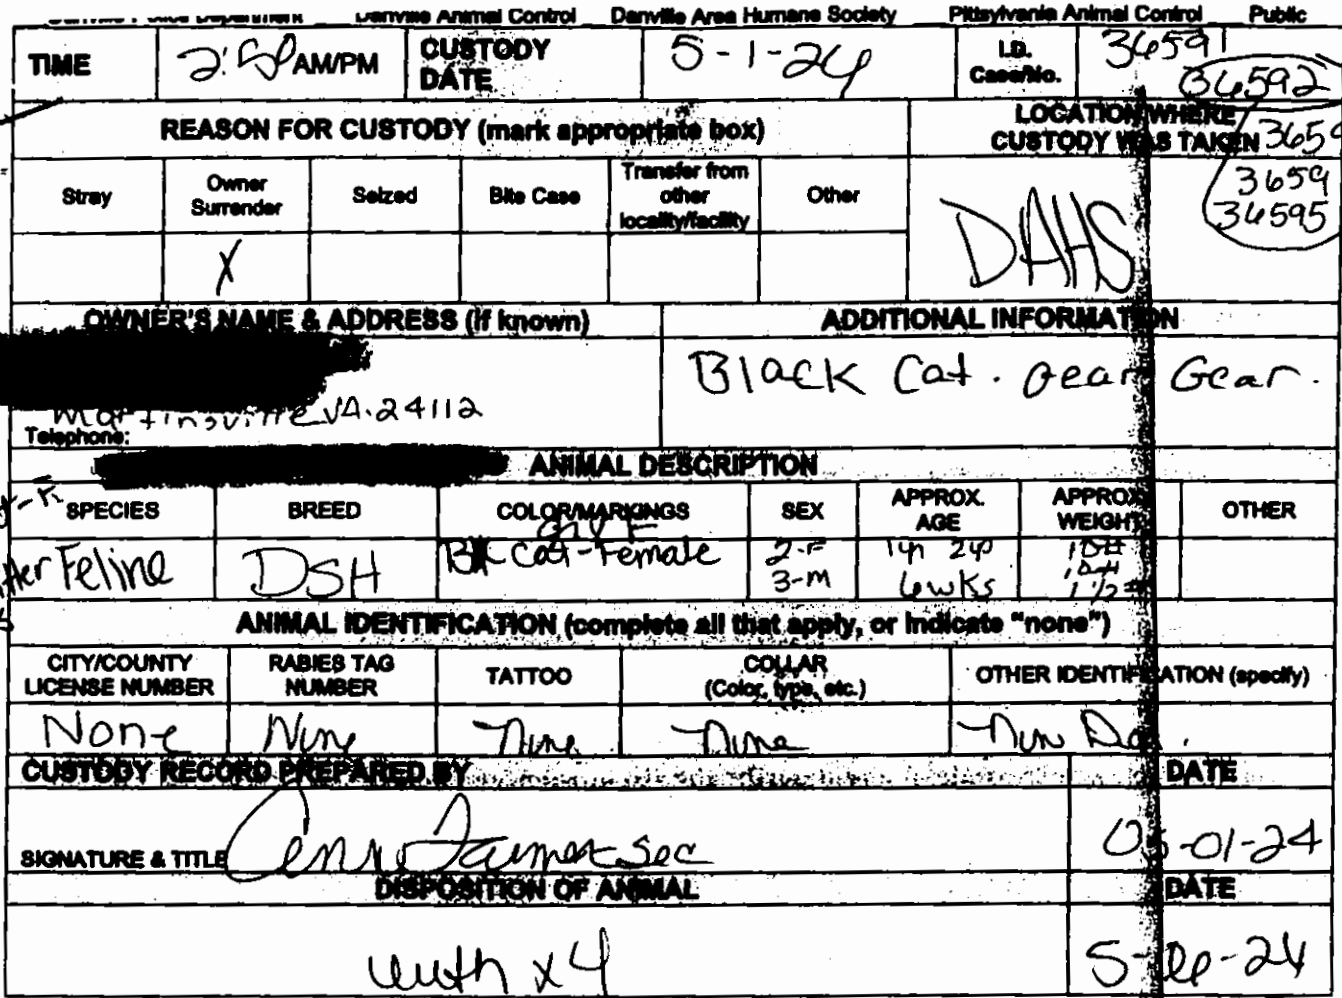 Danville Police Department Danville Animal Control Danville Area Humane Society Pittsylvania Animal Control Public
TIME 2:50 AM/PM CUSTODY DATE 5-1-24 I.D. Case/No. 36591
36592
REASON FOR CUSTODY (mark appropriate box) LOCATION WHERE CUSTODY WAS TAKEN 3659
Stray Owner Surrender Seized Bite Case Transfer from other locality/facility Other 3659
36595
X DAHS
OWNER'S NAME & ADDRESS (if known) ADDITIONAL INFORMATION
Black Cat. Gear.
Martinsville VA. 24112
Telephone:
ANIMAL DESCRIPTION
SPECIES BREED COLOR/MARKINGS SEX APPROX. AGE APPROX. WEIGHT OTHER
Feline DSH Cat-Female 2-F
3-M 6wks
ANIMAL IDENTIFICATION (complete all that apply, or indicate "none")
CITY/COUNTY LICENSE NUMBER RABIES TAG NUMBER TATTOO COLLAR (Color, type, etc.) OTHER IDENTIFICATION (specify)
None None None None
CUSTODY RECORD PREPARED BY DATE
SIGNATURE & TITLE Sec 05-01-24
DISPOSITION OF ANIMAL DATE
euth x4